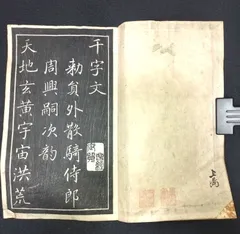 千字文
勅貟外散騎侍郎
周興嗣次韵
天地玄黃宇宙洪荒